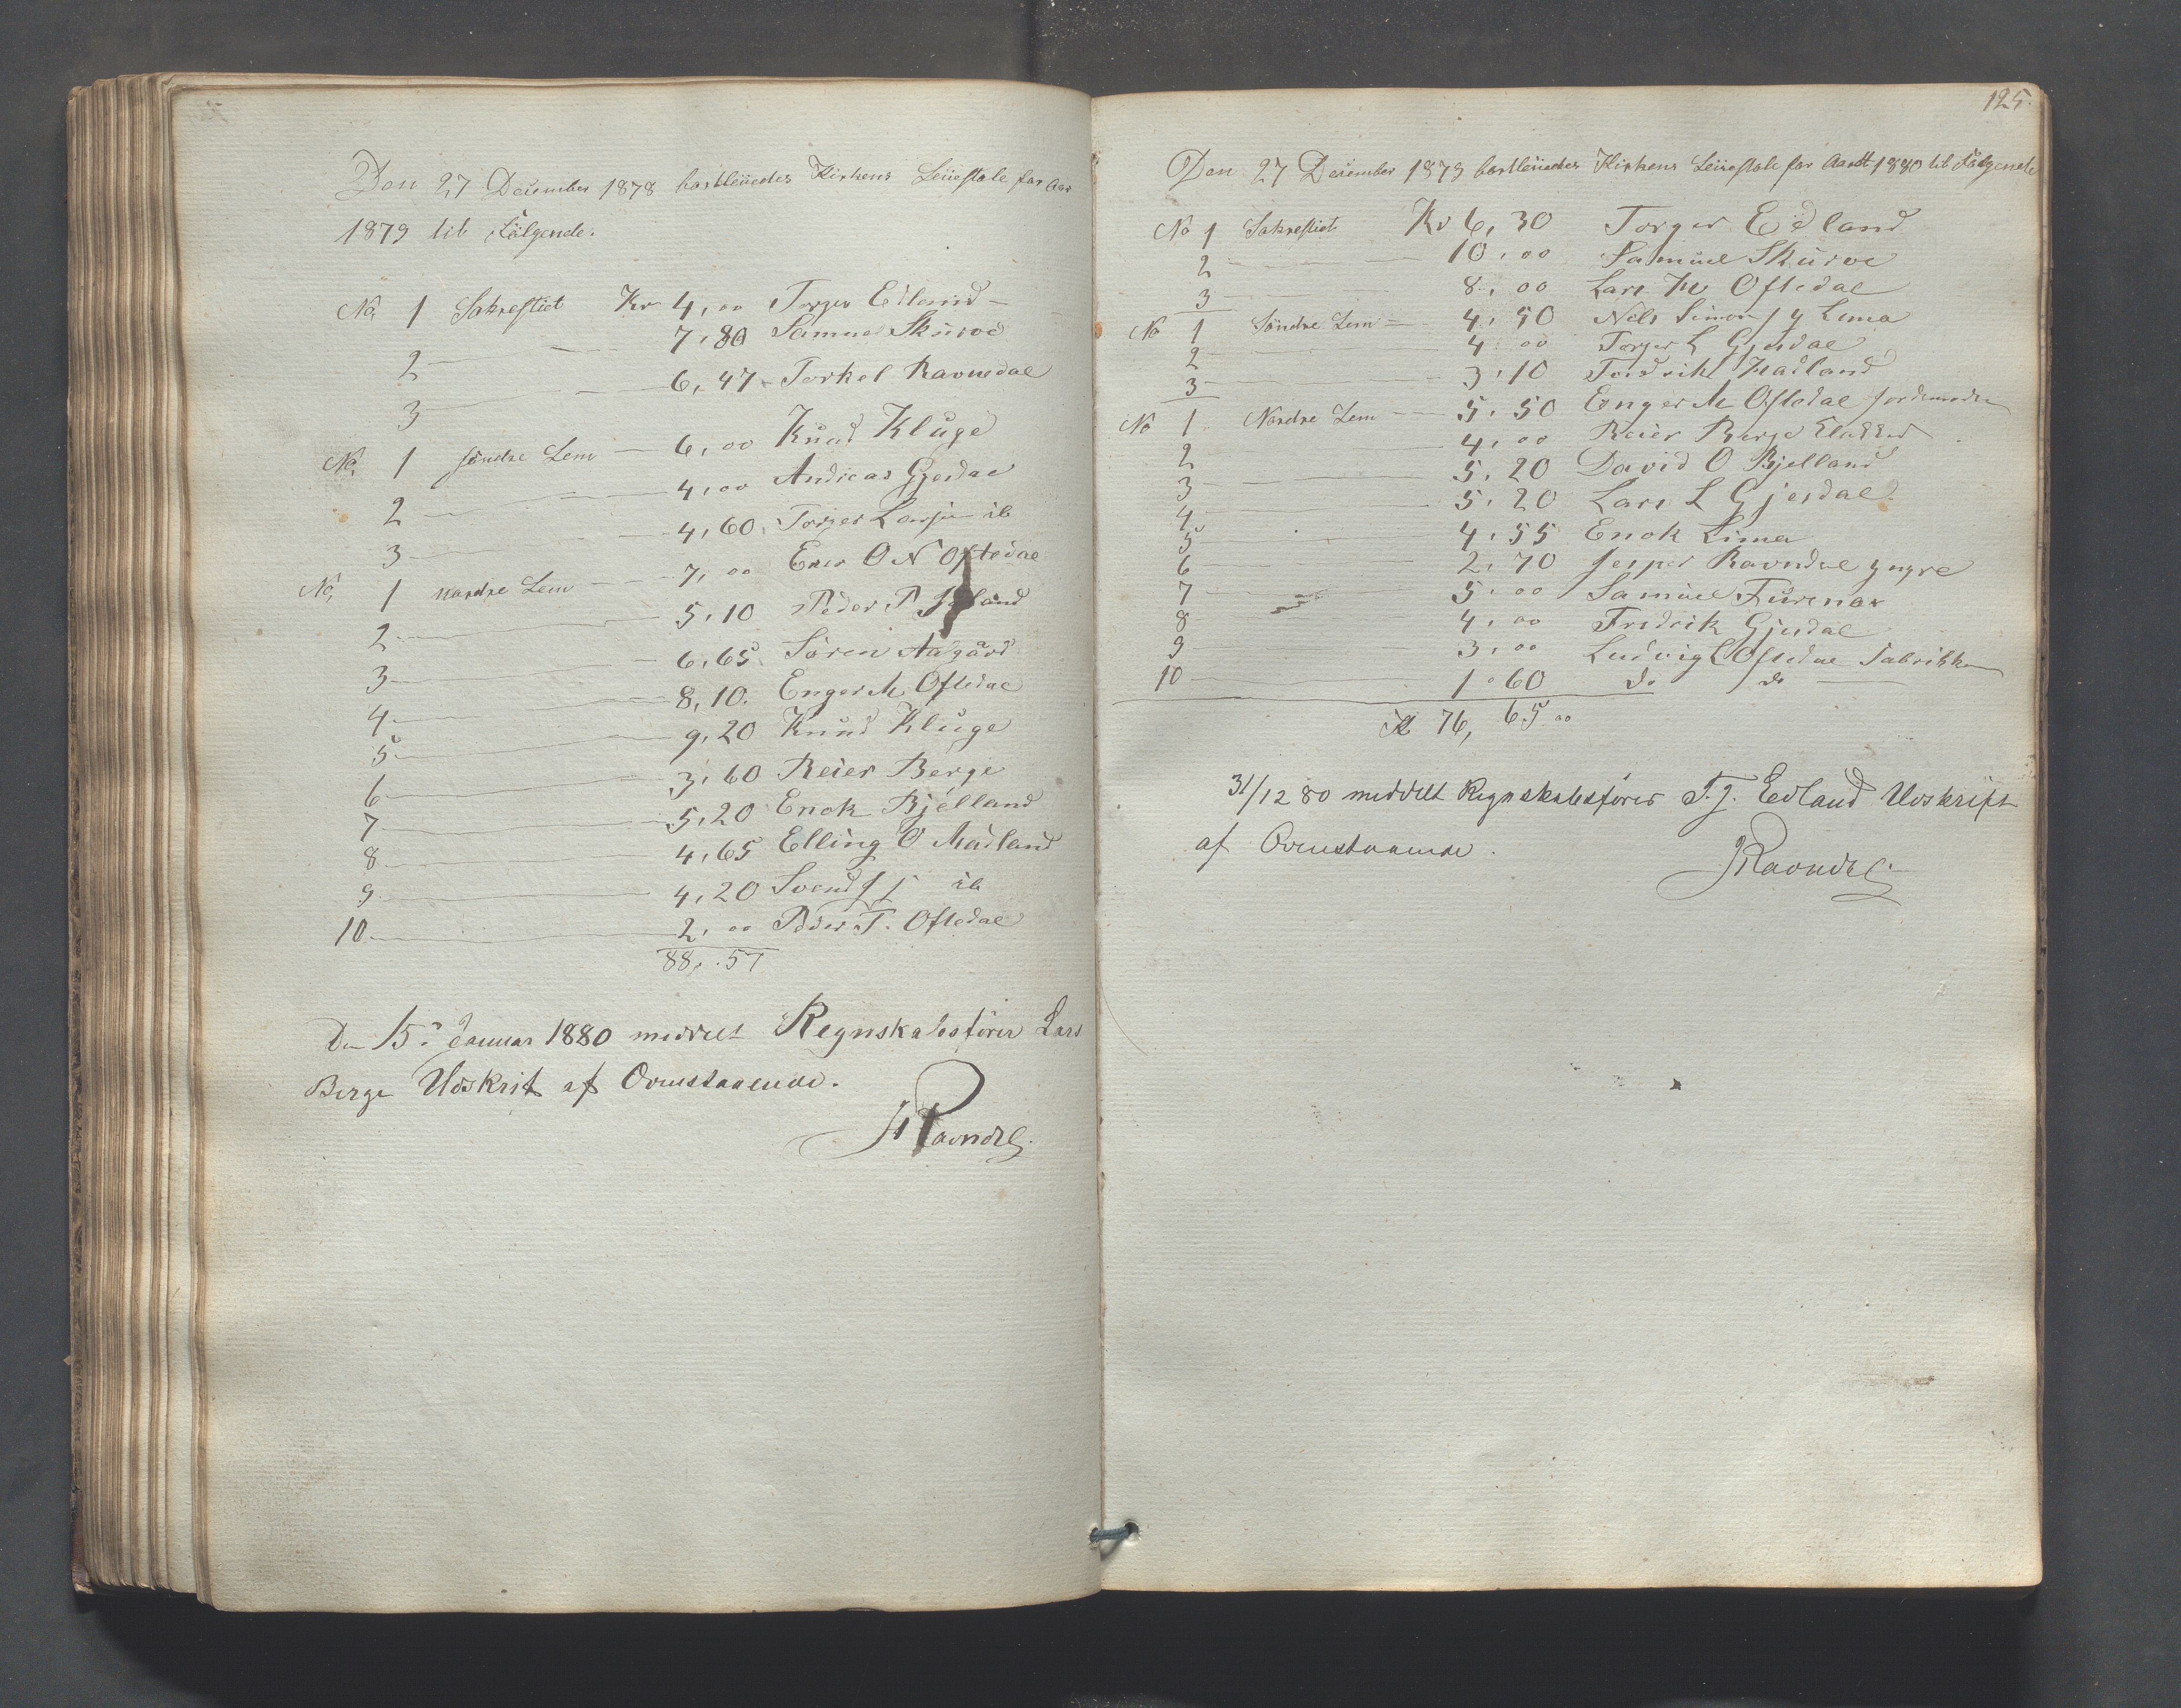 Den 27 December 1878 bortleiedes Kirkens Leiestole for Aar
1879 til følgende.
No. 1 Sakrestiet Kr 4,00 Torger Edland
2 7,80 Samuel Skurve
3 6,47 Torkel Ravnedal
No. 1 søndre Lem 6,00 Knud Kluge
2 4,00 Andreas Gjesdal
3 4,60 Torger Larsen ib
No. 1 nordre Lem 7,00 O N Oftedal
2 5,10 Peder P
3 6,65 Søren Aagård
4 8,10 Enger M Oftedal
5 9,20 Knud Kluge
6 3,60 Reier Berge
7 5,20 Enok Bjelland
8 4,65 Elling O Madland
9 4,20 Svend ib
10 2,00 Peder T. Oftedal
88,.57
Den 15. Januar 1880 meddelt Regnskabsfører Lars
Berge Udskrit af Ovenstaaende.
JRavndal.
125.
Den 27 December 1879 bortleiedes Kirkens Leiestole for Aaret 1880 til følgende
No 1 Sakrestiet Kr 6,30 Torger Edland
2 10,00 Samuel Skurve
3 8,00 Lars Oftedal
No 1 Søndre Lem 4,50 Nils Simon Lima
2 4,00 Torger L Gjesdal
3 3,10 Fredrik Madland
No 1 Nordre Lem 5,50 Enger M Oftedal
2 4,00 Reier Berge
3 5,20 David O Bjelland
4 5,20 Lars L Gjesdal
5 4,55 Enok Lima
6 2,70 Jesper Ravndal yngre
7 5,00 Samuel Furenæs
8 4,00 Fredrik Gjesdal
9 3,00 Ludvig L Oftedal Fabrikken
10 1,60 do do
Kr 76,65
31/12 80 meddelt Regnskabsfører T. J. Edland Udskrift
af Ovenstaaende.
JRavndal.